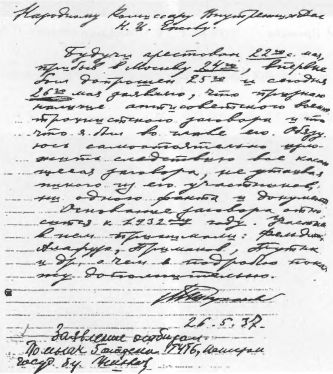 Народному Комиссару Внутренних Дел
Н. И. Ежову
Будучи арестован 22го мая,
прибыв в Москву 24го, впервые
был допрошен 25го и сегодня
26го мая заявляю, что признаю
наличие антисоветского военно-
троцкистского заговора и то,
что я был во главе его. Обязу-
юсь самостоятельно изло-
жить следствию все каса-
ющееся заговора, не утаивая
никого из его участников,
ни одного факта и документа.
Основание заговора отно-
сится к 1932му году. Участие
в нем принимали: Фельдман,
Алафузо, Примаков, Путна
и др., о чем я подробно пока-
жу дополнительно.
Тухачевский
26.5.37.
Заявление отобрал
Пом нач 5 отдела ГУГБ, капитан
госуд. без.